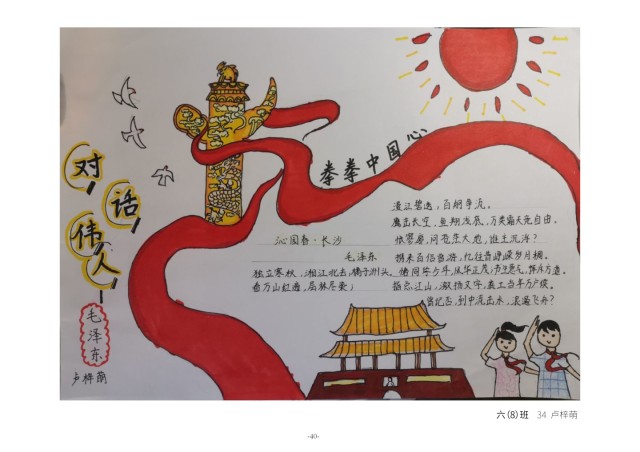 对话伟人
毛泽东
卢梓萌
拳拳中国心
沁园春·长沙
毛泽东
独立寒秋,湘江北去,橘子洲头。
看万山红遍,层林尽染;
漫江碧透,百舸争流。
鹰击长空,鱼翔浅底,万类霜天竞自由。
怅寥廓,问苍茫大地,谁主沉浮?
携来百侣曾游,忆往昔峥嵘岁月稠。
恰同学少年,风华正茂;书生意气,挥斥方遒。
指点江山,激扬文字,粪土当年万户侯。
曾记否,到中流击水,浪遏飞舟?
六(8)班 34 卢梓萌
-40-